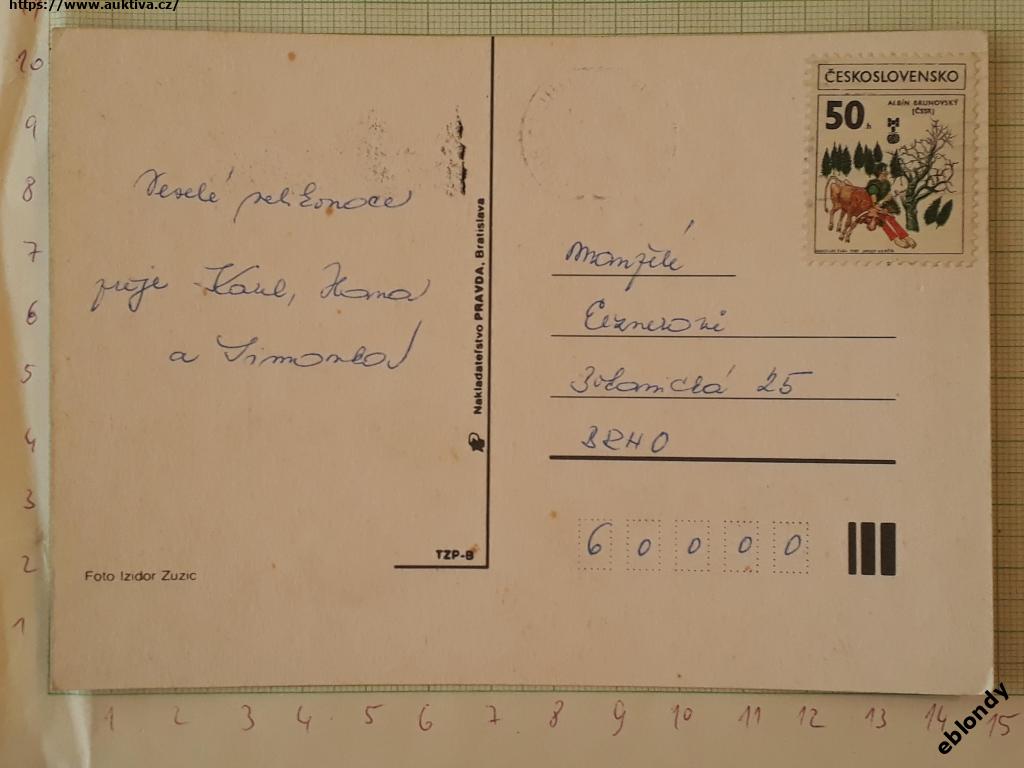 https://www.auktiva.cz/
ČESKOSLOVENSKO
50 h
ALBÍN BRUNOVSKÝ
(ČSSR)
Veselé velikonoce
přeje Karel, Hana
a Simonka
Nakladateľstvo PRAVDA, Bratislava
TZP-B
Foto Izidor Zuzic
Manželé
Botanická 25
BRNO
6 0 0 0 0
10
9
8
7
6
5
4
3
2
1
1 2 3 4 5 6 7 8 9 10 11 12 13 14 15
eblondy